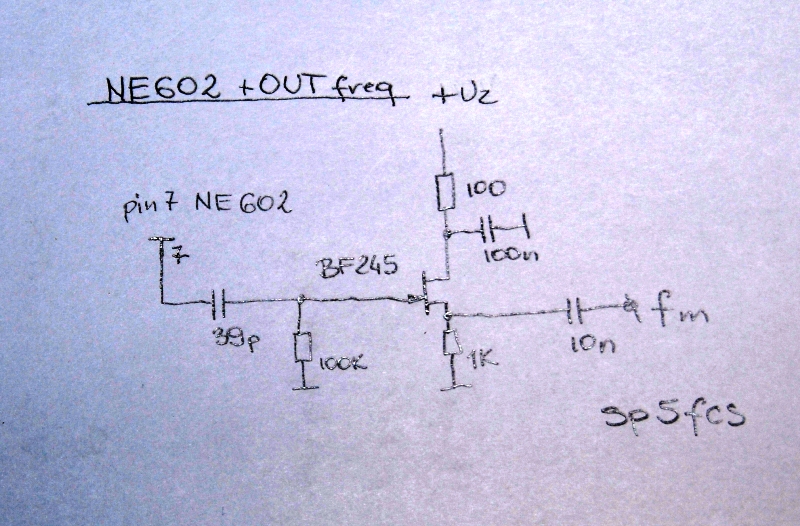 NE602 +OUT freq +Uz
100
pin7 NE602
7
100n
BF245
39p
100K
1K
10n
fm
sp5fcs